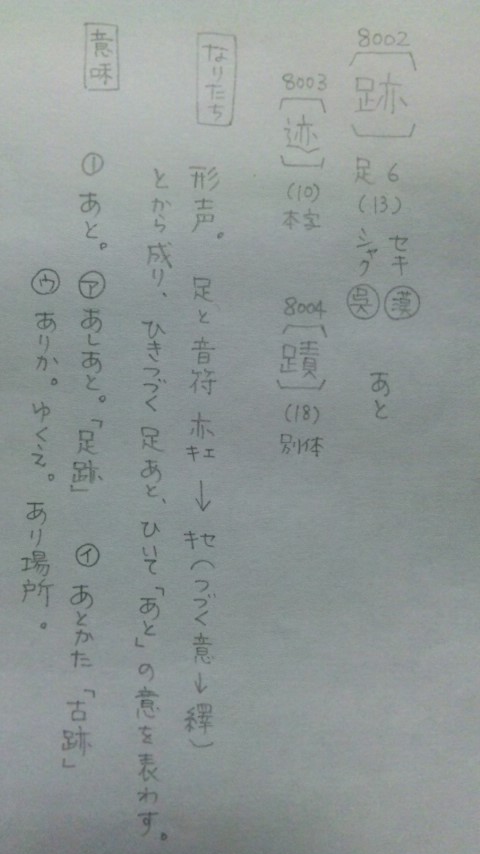 8002
跡
足 6
(13)
セキ 漢
シャク 呉
あと
8003
迹
(10)
本字
8004
蹟
(18)
別体
なりたち
形声。 足と音符 亦 → セキ(つづく意→繹)
とから成り、ひきつづく足あと、ひいて「あと」の意を表わす。
意味
① あと。 ㋐ あしあと。「足跡」 ㋑ あとかた「古跡」
㋒ ありか。ゆくえ。あり場所。